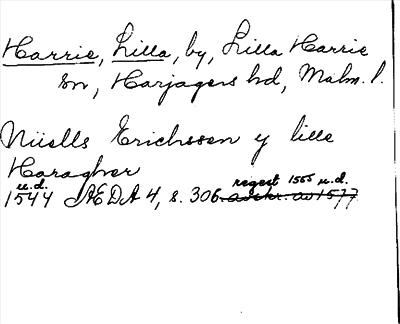 Harrie, Lilla, by, Lilla Harrie
sn, Harjagers hd, Malm. l.
Niells Erichssen y lille
Haragher
u.d. regest 1555 u.d.
1544 AEDA 4, s. 306. avskr. av 1577